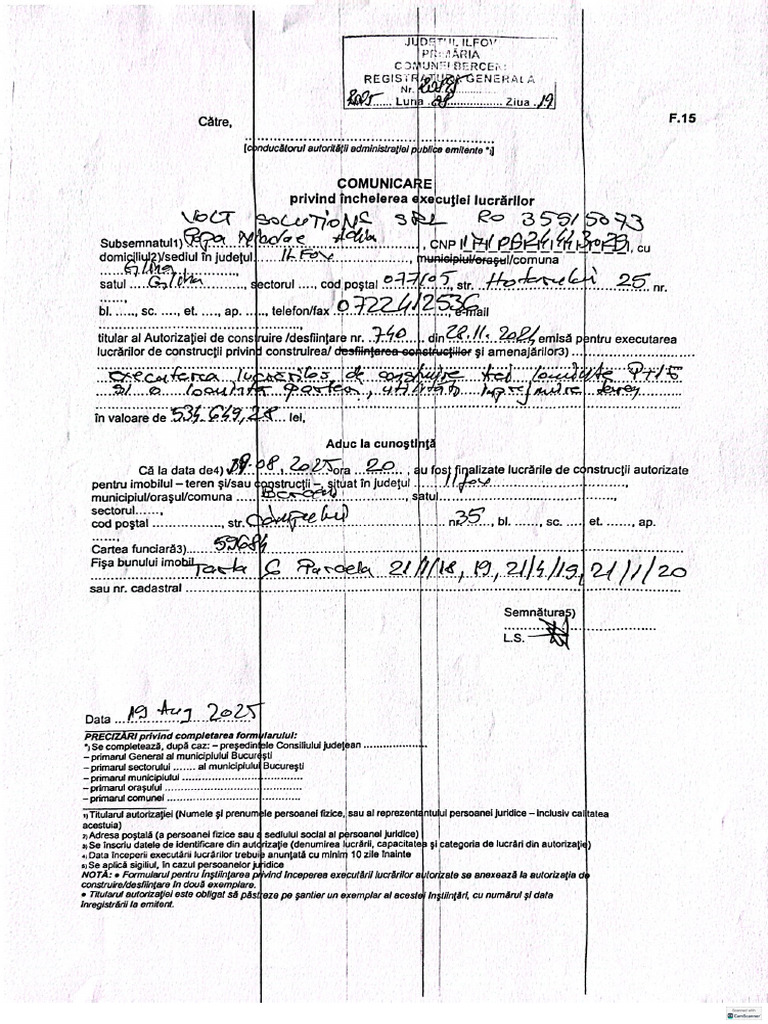 JUDEȚUL ILFOV
PRIMĂRIA
COMUNEI BERCENI
REGISTRATURA GENERALĂ
Nr.
2025 Luna 08 Ziua 19
F.15
Către,
[conducătorul autorității administrației publice emitente *)]
COMUNICARE
privind încheierea execuției lucrărilor
VOLT SOLUTIONS SRL RO 35515073
Subsemnatul1) Popa Nicolae, CNP, cu
domiciliul2)/sediul în județul ILFOV municipiul/orașul/comuna
Glina
satul Glina, sectorul ...., cod poștal 077105, str. Hotarului 25 nr.
......,
bl. ...., sc. ..., et. ..., ap. ...., telefon/fax 0722412536, e-mail
titular al Autorizației de construire /desființare nr. 740 din 28.11.2021, emisă pentru executarea
lucrărilor de construcții privind construirea/ desființarea construcțiilor și amenajărilor3)
executarea lucrărilor de construire trei locuințe P+1E
și o locuință parter, utilități împrejmuire teren
în valoare de 534.649,28 lei,
Aduc la cunoștință
Că la data de4) 19.08.2025 ora 20, au fost finalizate lucrările de construcții autorizate
pentru imobilul – teren și/sau construcții –, situat în județul Ilfov
municipiul/orașul/comuna Berceni, satul
sectorul......,
cod poștal, str. nr. 35, bl. ...., sc. .... et. ......, ap.
......,
Cartea funciară3) 59684
Fișa bunului imobil Tarla 6 Parcela 21/1/18, 19, 21/4/19, 21/1/20
sau nr. cadastral
Semnătura5)
L.S.
Data 19 Aug 2025
PRECIZĂRI privind completarea formularului:
*) Se completează, după caz: – președintele Consiliului județean
– primarul General al municipiului București
– primarul sectorului ....... al municipiului București
– primarul municipiului
– primarul orașului
– primarul comunei
1) Titularul autorizației (Numele și prenumele persoanei fizice, sau al reprezentantului persoanei juridice – inclusiv calitatea
acestuia)
2) Adresa poștală (a persoanei fizice sau a sediului social al persoanei juridice)
3) Se înscriu datele de identificare din autorizație (denumirea lucrării, capacitatea și categoria de lucrări din autorizație)
4) Data începerii executării lucrărilor trebuie anunțată cu minim 10 zile înainte
5) Se aplică sigiliul, în cazul persoanelor juridice
NOTĂ: ● Formularul pentru înștiințarea privind începerea executării lucrărilor autorizate se anexează la autorizația de
construire/desființare în două exemplare.
● Titularul autorizației este obligat să păstreze pe șantier un exemplar al acestei înștiințări, cu numărul și data
înregistrării la emitent.
Scanned with
CamScanner